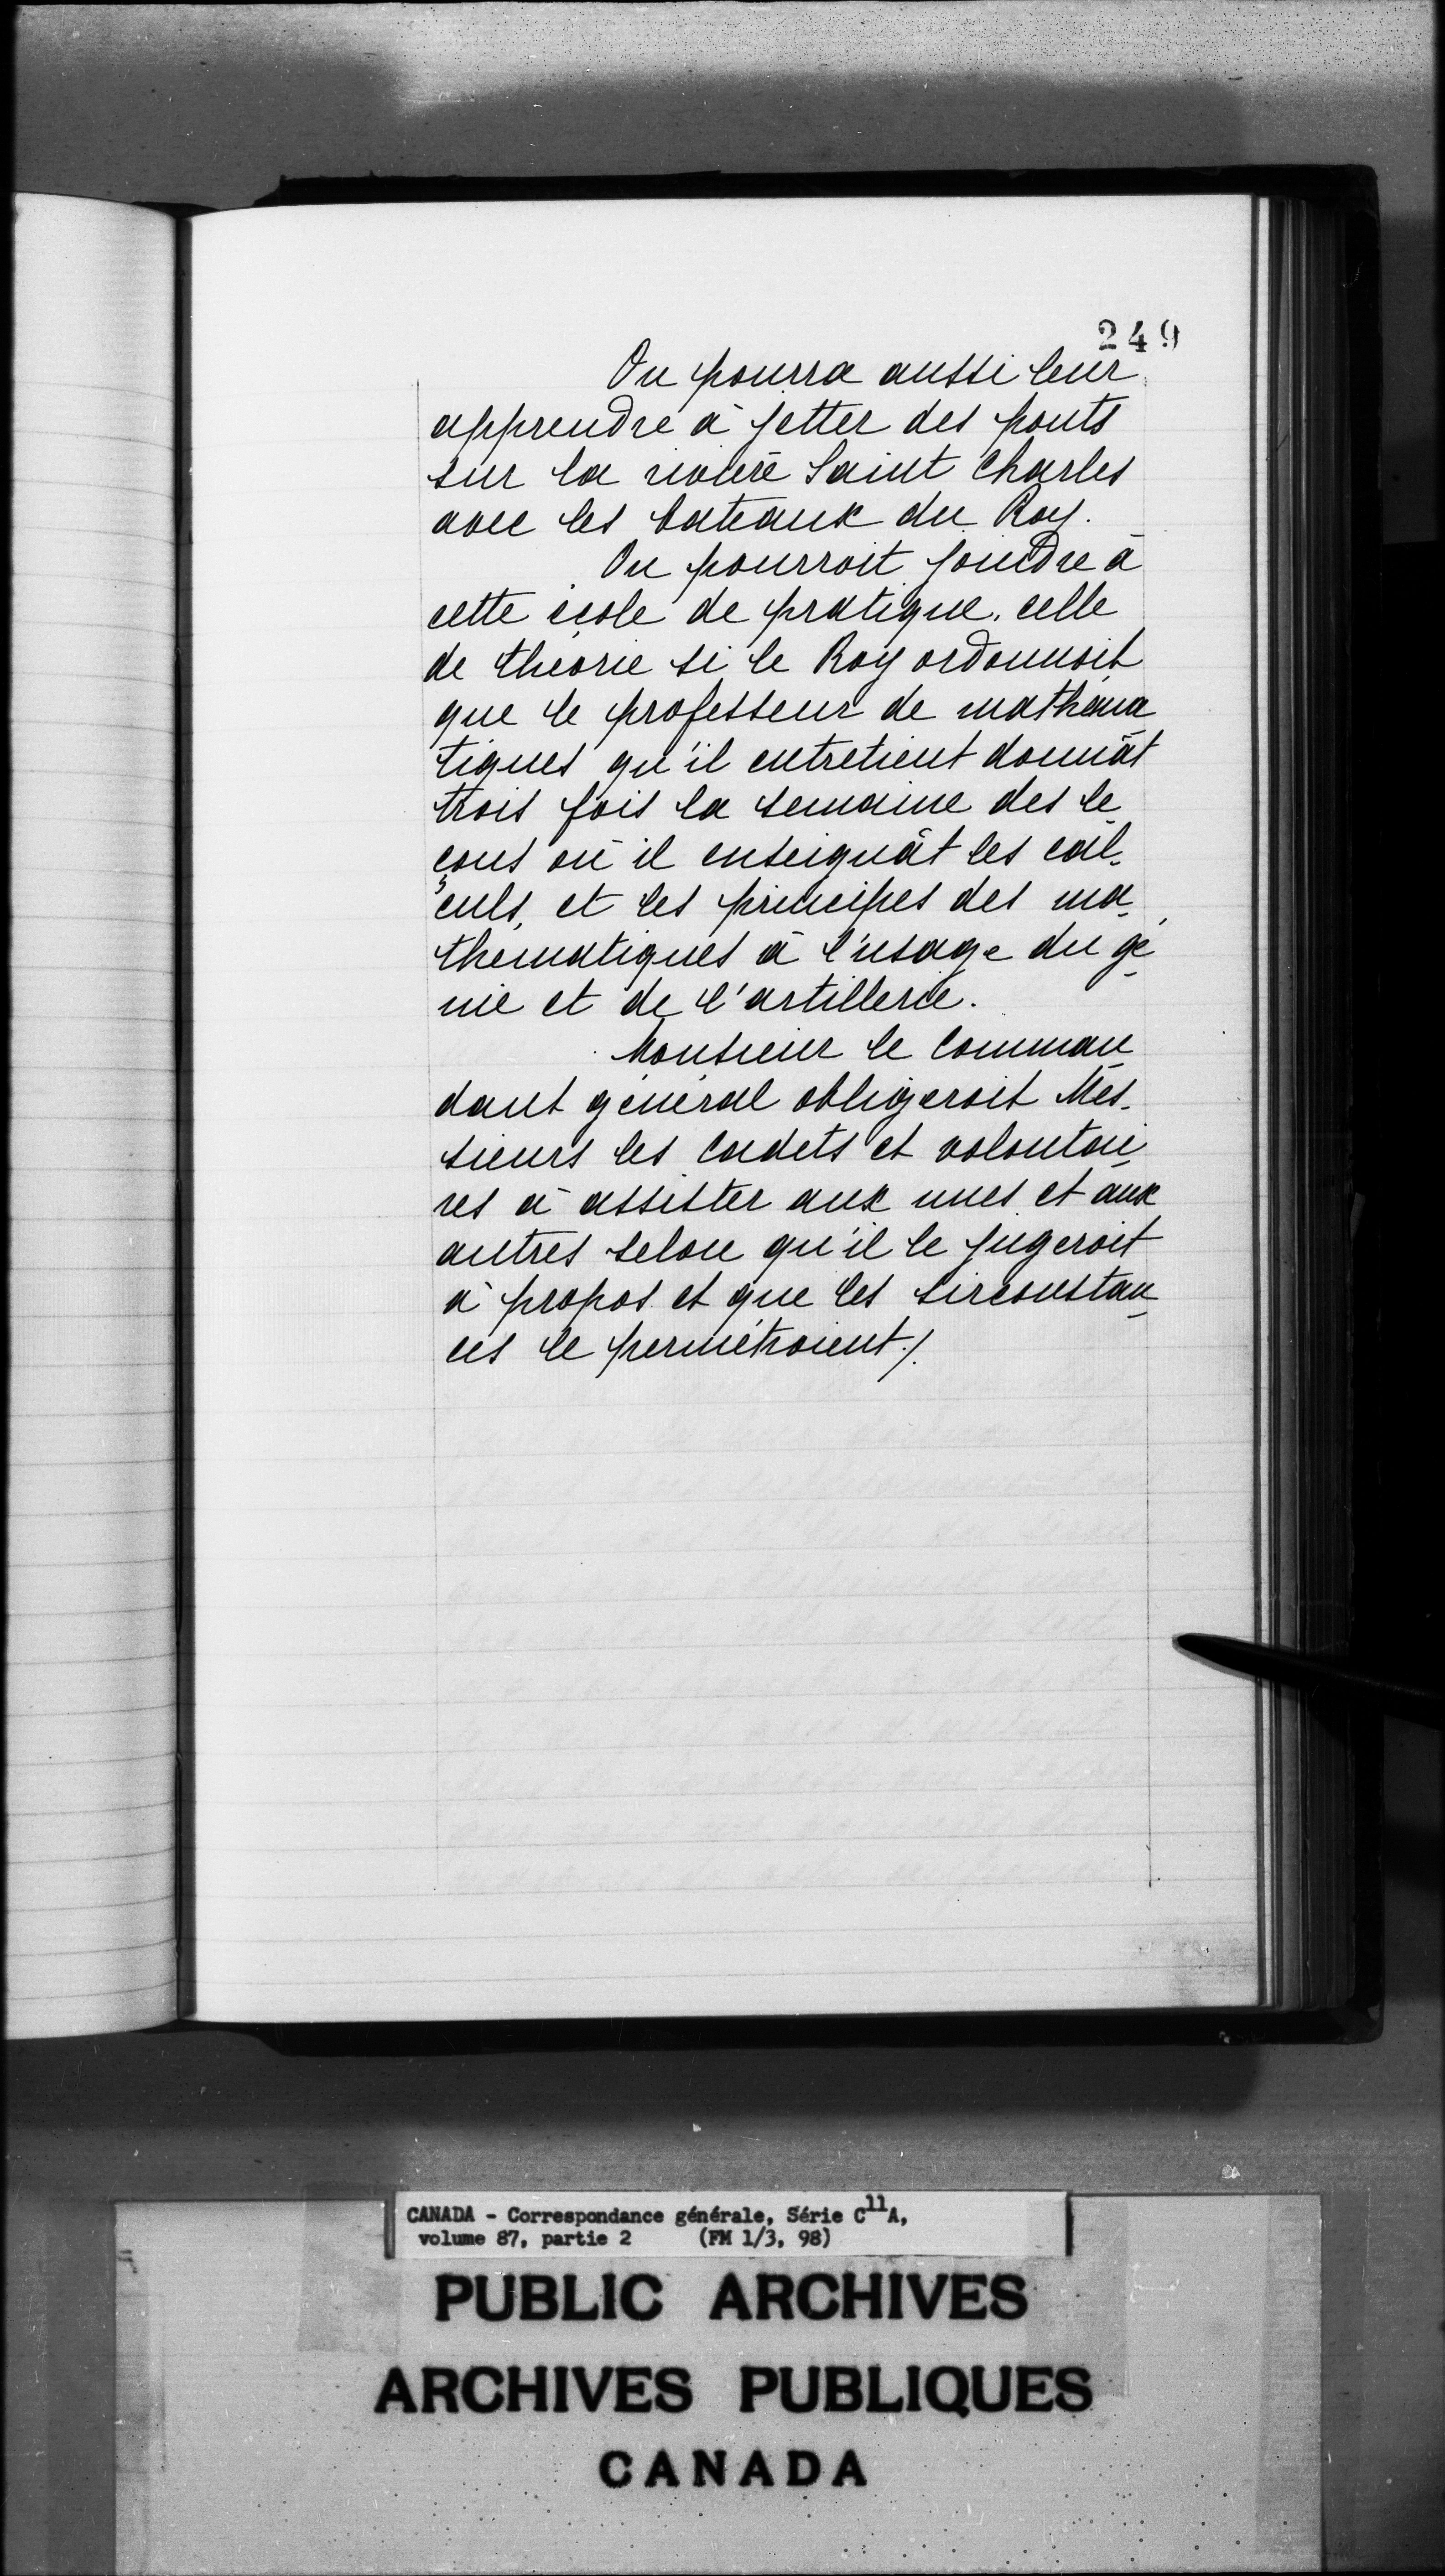 249
On pourra aussi leur
apprendre à jetter des ponts
sur la rivière Saint Charles
avec les bateaux du Roy.
On pourroit joindre à
cette école de pratique, celle
de théorie si le Roy ordonnoit
que le professeur de mathéma
tiques qu'il entretient donnât
trois fois la semaine des le
çons où il enseignât les cal-
culs, et les principes des ma-
thématiques à l'usage du gé
nie et de l'artillerie.
Monsieur le Comman
dant général obligeroit Mes-
sieurs les Cadets et volontai
res à assister aux unes et aux
autres selon qu'il le jugeroit
à propos et que les sirconstan
ces le permétroient./.
CANADA - Correspondance générale, Série C11A,
volume 87, partie 2 (FM 1/3, 98)
PUBLIC ARCHIVES
ARCHIVES PUBLIQUES
CANADA